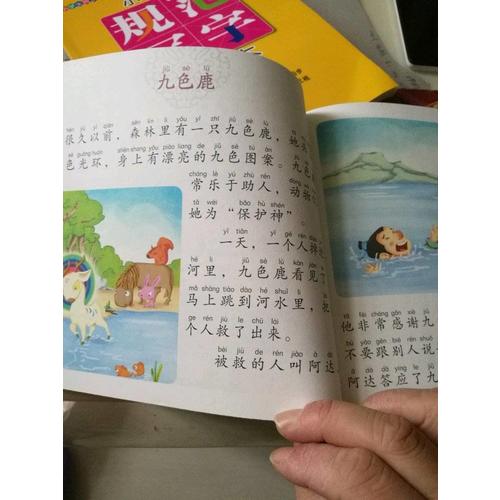 规范
字
jiǔ sè lù
九色鹿
hěn jiǔ yǐ qián sēn lín lǐ yǒu yī zhī jiǔ sè lù
很久以前，森林里有一只九色鹿，
sè guāng huán shēn shang yǒu piào liang de jiǔ sè tú àn
色光环，身上有漂亮的九色图案。
cháng lè yú zhù rén
常乐于助人，动物
tā wéi bǎo hù shén
她为“保护神”。
yī tiān yī gè rén
一天，一个人掉
hé lǐ jiǔ sè lù kàn jiàn
河里，九色鹿看见了
mǎ shàng tiào dào hé shuǐ lǐ
马上跳到河水里，把
gè rén jiù le chū lái
个人救了出来。
bèi jiù de rén jiào ā dá
被救的人叫阿达
她
九色
tā fēi cháng gǎn xiè jiǔ
他非常感谢九
bú yào gēn bié rén shuō
不要跟别人说
ā dá dā yìng le jiǔ
阿达答应了九